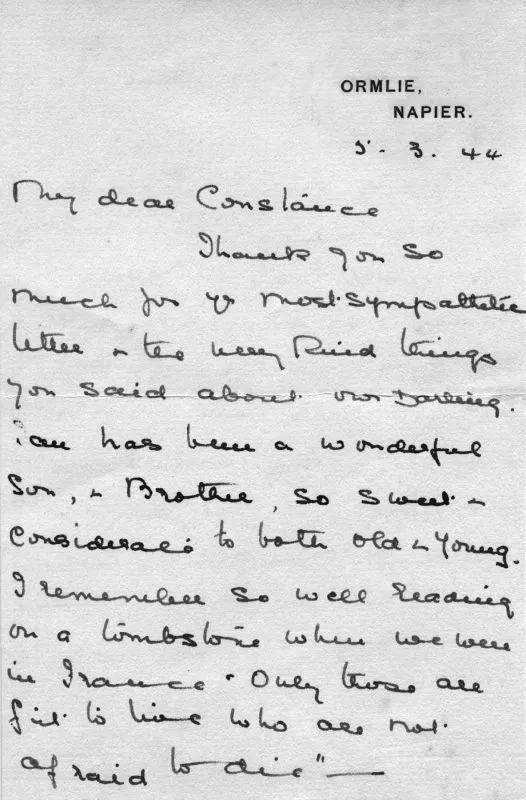 ORMLIE,
NAPIER.
5. 3. 44
My dear Constance
Thank you so
much for yr most sympathetic
letter & the very kind things
you said about our Darling.
Ian has been a wonderful
Son, & Brother, so sweet &
considerate to both old & young.
I remember so well reading
on a tombstone when we were
in France "Only those are
fit to live who are not
afraid to die" —